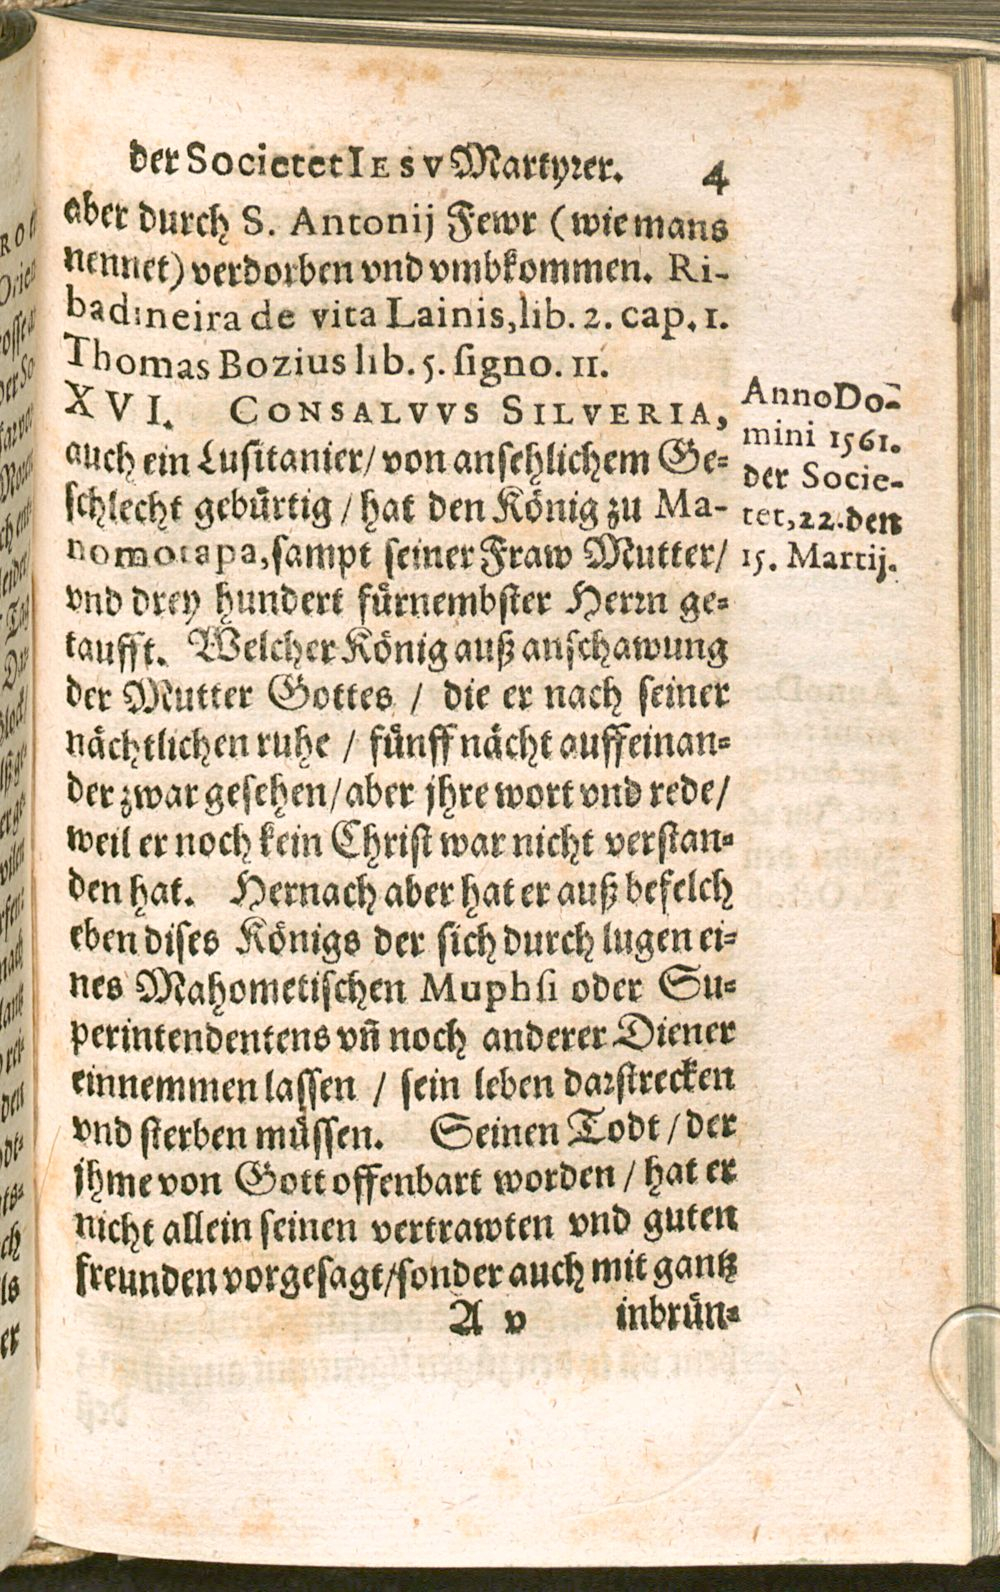 der Societet IESV Martyrer. 4
aber durch S. Antonij Fewr (wie mans
nennet) verdorben vnd vmbkommen. Ri-
badineira de vita Lainis, lib. 2. cap. 1.
Thomas Bozius lib. 5. signo. 11.
XVI. CONSALVVS SILVERIA,
auch ein Lusitanier/ von ansehlichem Ge=
schlecht gebürtig / hat den König zu Ma-
nomotapa, sampt seiner Fraw Mutter/
vnd drey hundert fürnembster Herrn ge=
taufft. Welcher König auß anschawung
der Mutter Gottes / die er nach seiner
nächtlichen ruhe / fünff nächt auffeinan=
der zwar gesehen/ aber jhre wort vnd rede/
weil er noch kein Christ war nicht verstan=
den hat. Hernach aber hat er auß befelch
eben dises Königs der sich durch lugen ei=
nes Mahometischen Muphsi oder Su=
perintendentens vñ noch anderer Diener
einnemmen lassen / sein leben darstrecken
vnd sterben müssen. Seinen Todt / der
jhme von Gott offenbart worden / hat er
nicht allein seinen vertrawten vnd guten
freunden vorgesagt/ sonder auch mit gantz
A v inbrün=
Anno Do=
mini 1561.
der Socie-
tet, 22. den
15. Martij.